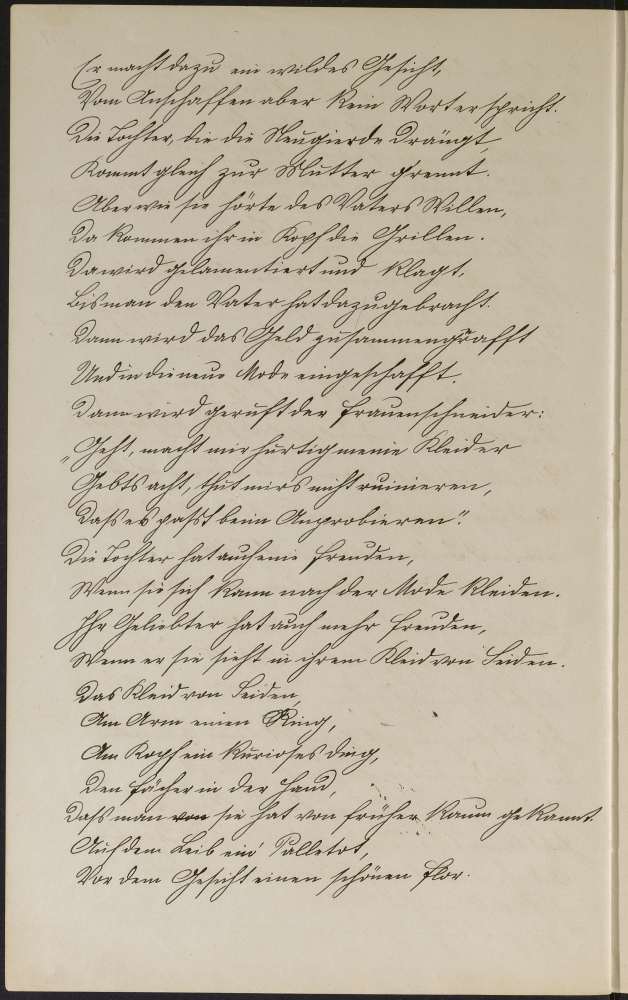 Er macht dazu ein wildes Gesicht,
Vom Anschaffen aber kein Wort er spricht.
Die Tochter, die die Neugierde drängt
Kommt gleich zur Mutter g'rennt.
Aber wie sie hörte des Vaters Willen,
Da kommen ihr in Kopf die Grillen.
Da wird gelamentiert und klagt,
Bis man den Vater hat dazugebracht.
Dann wird das Geld zusammengrafft
Und in die neue Mode eingeschafft.
Dann wird geruft der Frauenschneider:
"Geht, macht mir hurtig meine Kleider
Gebts acht, thut mir's nicht ruinieren,
Dass es passt beim Anprobieren".
Die Tochter hat auch eine Freuden,
Wenn sie sich kann nach der Mode kleiden.
Ihr Geliebter hat auch mehr Freuden,
Wenn er sie sieht in ihrem Kleid von Seiden.
Das Kleid von Seiden,
Am Arm einen Ring,
Am Kopf ein kurioses Ding,
Den Fächer in der Hand,
Dass man von sie hat von früher kaum gekannt.
Auf dem Leib ein' Palletot,
Vor dem Gesicht einen schönen Flor.